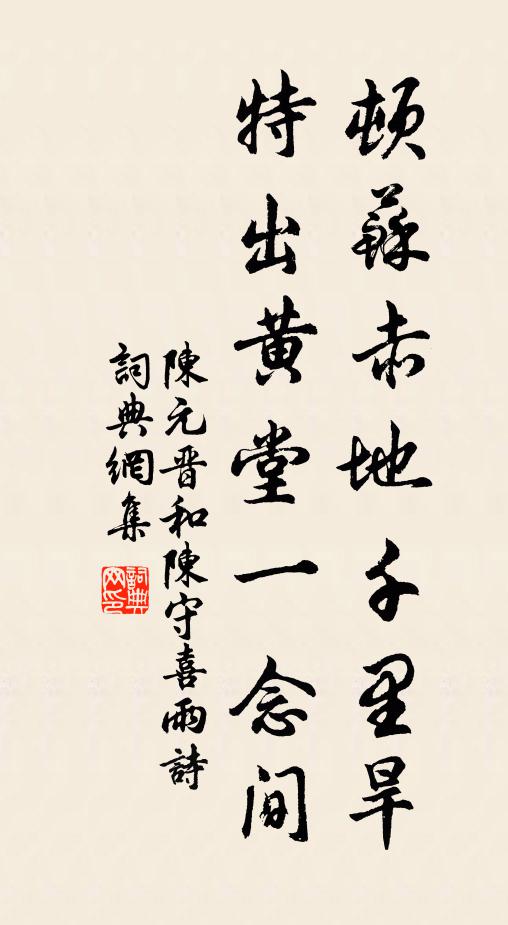 頓蘇赤地千里旱
特出黄堂一念间
陳元晋和陳守喜雨詩
詞典網集
詞典网印